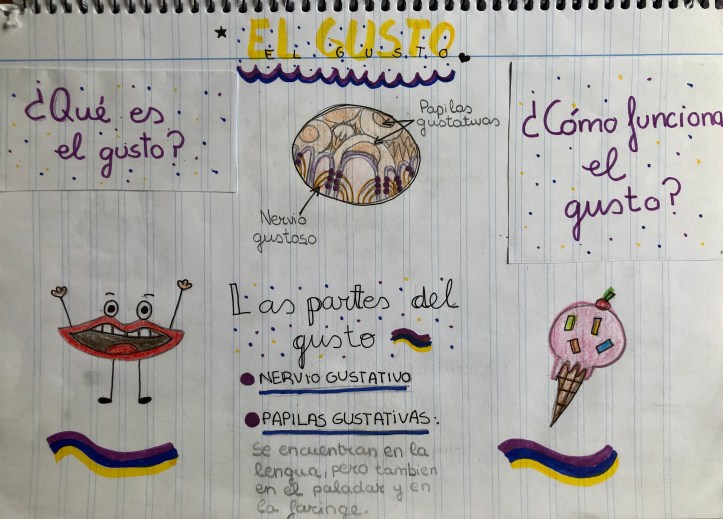 EL GUSTO
EL GUSTO
¿Qué es
el gusto?
Papilas
gustativas
Nervio
gustoso
¿Cómo funciona
el
gusto?
Las partes del
gusto
NERVIO GUSTATIVO
PAPILAS GUSTATIVAS:.
Se encuentran en la
lengua, pero tambien
en el paladar y en
la faringe.